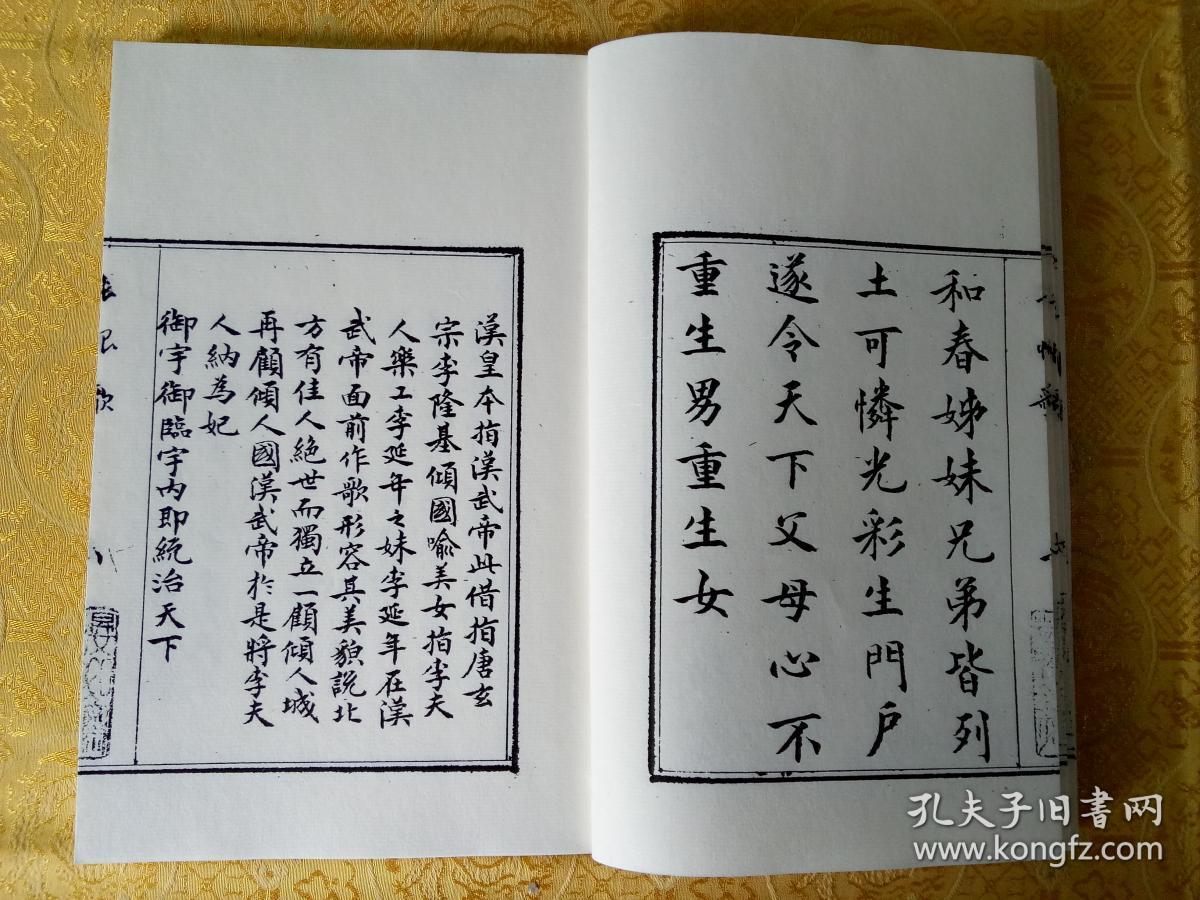 和春姊妹兄弟皆列
土可憐光彩生門户
遂令天下父母心不
重生男重生女
漢皇本指漢武帝此借指唐玄
宗李隆基傾國喻美女指李夫
人樂工李延年之妹李延年在漢
武帝面前作歌形容其美貌說北
方有佳人絕世而獨立一顧傾人城
再顧傾人國漢武帝於是將李夫
人納為妃
御宇御臨宇内即統治天下
長恨歌
八
孔夫子旧书网
www.kongfz.com